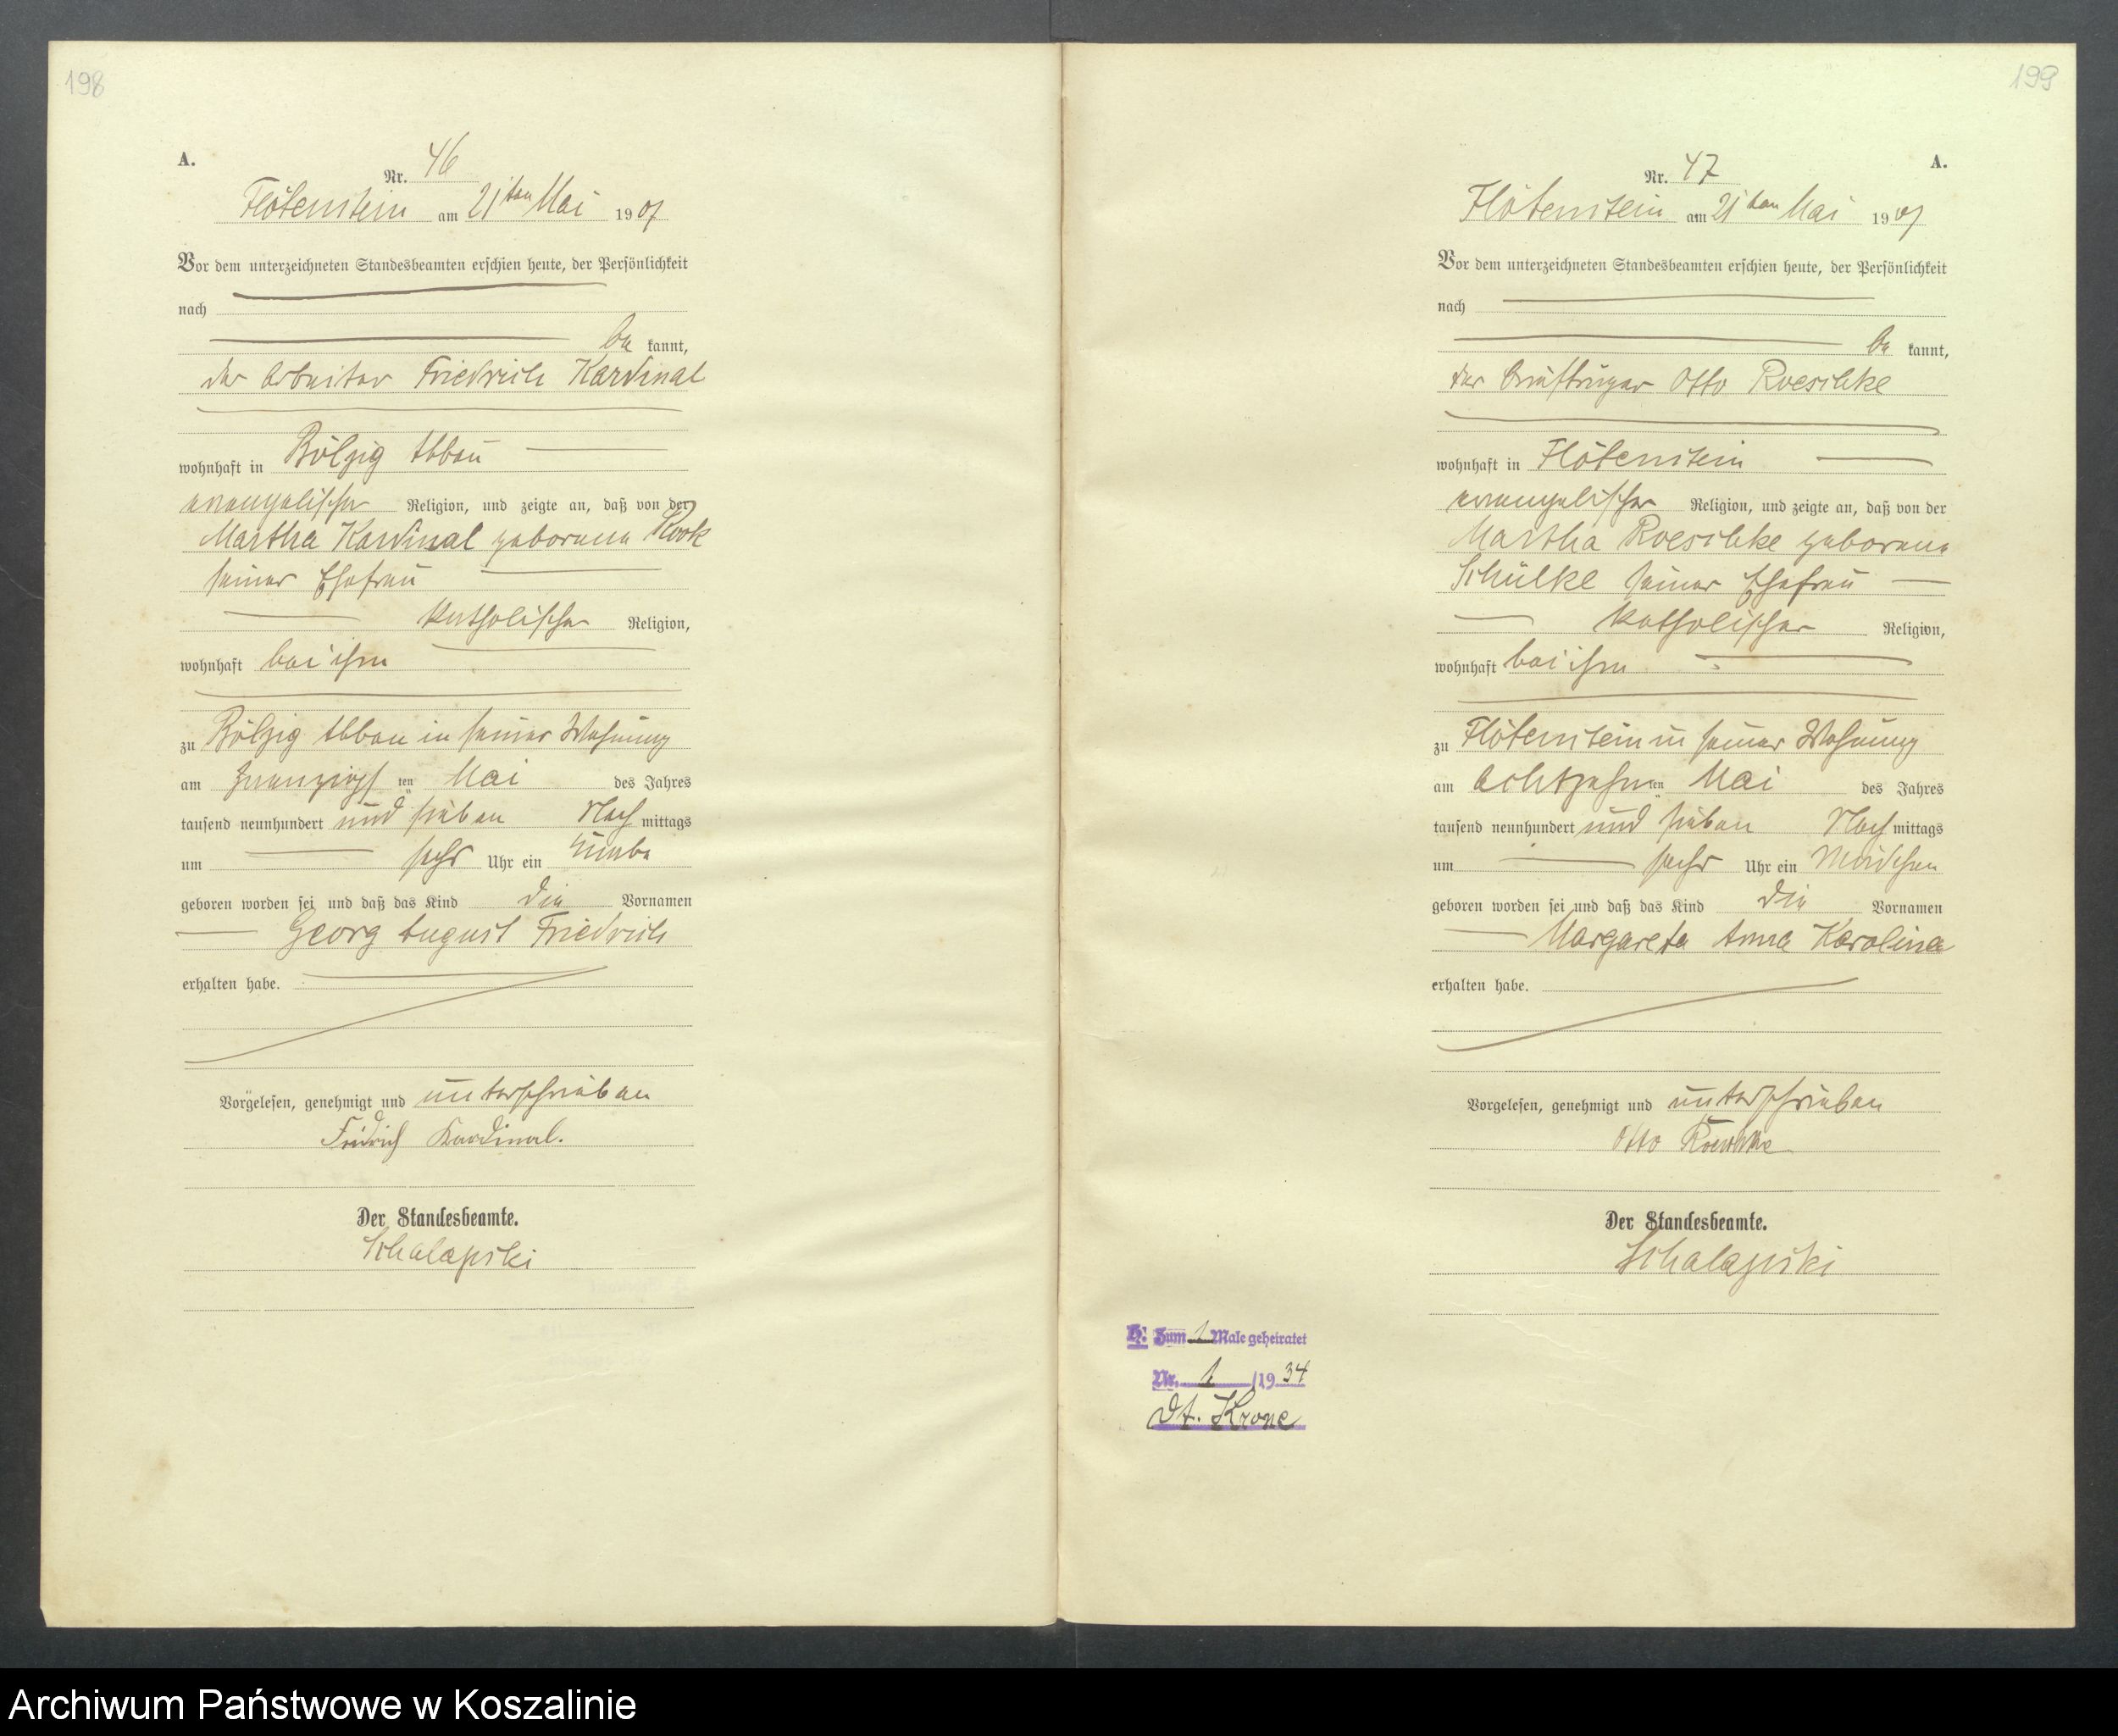 198
A.
Nr. 46
Flötenstein am 21ten Mai 1907
Vor dem unterzeichneten Standesbeamten erschien heute, der Persönlichkeit
nach
be kannt,
der Arbeiter Friedrich Kardinal
wohnhaft in Bölzig Abbau
evangelischer Religion, und zeigte an, daß von der
Martha Kardinal geborene Kook
seiner Ehefrau
katholischer Religion,
wohnhaft bei ihm
zu Bölzig Abbau in seiner Wohnung
am zwanzigsten Mai des Jahres
tausend neunhundert und sieben Nachmittags
um sechs Uhr ein Knabe
geboren worden sei und daß das Kind die Vornamen
Georg August Friedrich
erhalten habe.
Vorgelesen, genehmigt und unterschrieben
Fridrich Kardinal.
Der Standesbeamte.
Schalapski
199
A.
Nr. 47
Flötenstein am 21ten Mai 1907
Vor dem unterzeichneten Standesbeamten erschien heute, der Persönlichkeit
nach
be kannt,
der Briefträger Otto Roeschke
wohnhaft in Flötenstein
evangelischer Religion, und zeigte an, daß von der
Martha Roeschke geborene
Schülke seiner Ehefrau
katholischer Religion,
wohnhaft bei ihm
zu Flötenstein in seiner Wohnung
am achtzehnten Mai des Jahres
tausend neunhundert und sieben Nachmittags
um sechs Uhr ein Mädchen
geboren worden sei und daß das Kind die Vornamen
Margareta Anna Karolina
erhalten habe.
Vorgelesen, genehmigt und unterschrieben
Otto Roeschke
Der Standesbeamte.
Schalapski
H: Zum 1 Male geheiratet
Nr. 1 /1934
Dt. Krone
Archiwum Państwowe w Koszalinie